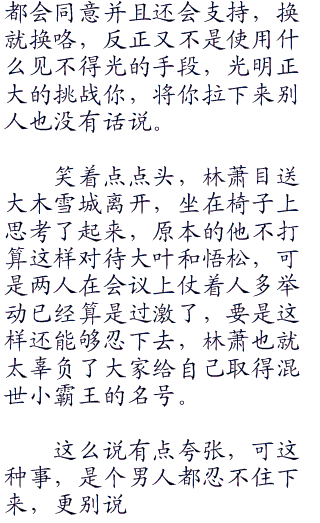 都会同意并且还会支持，换
就换咯，反正又不是使用什
么见不得光的手段，光明正
大的挑战你，将你拉下来别
人也没有话说。
　　笑着点点头，林萧目送
大木雪城离开，坐在椅子上
思考了起来，原本的他不打
算这样对待大叶和悟松，可
是两人在会议上仗着人多举
动已经算是过激了，要是这
样还能够忍下去，林萧也就
太辜负了大家给自己取得混
世小霸王的名号。
　　这么说有点夸张，可这
种事，是个男人都忍不住下
来，更别说